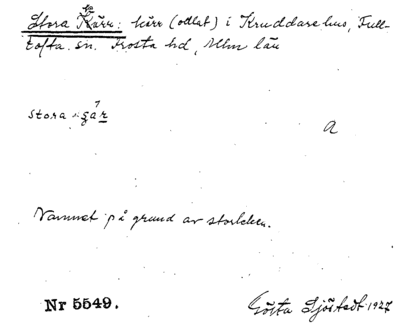 Stora Kärr: kärr (odlat) i Kruddarehus, Full-
tofta sn. Frosta hd, Mlm län
stora
a
Namnet på grund av storleken.
Nr 5549.
Gösta Sjöstedt 1927